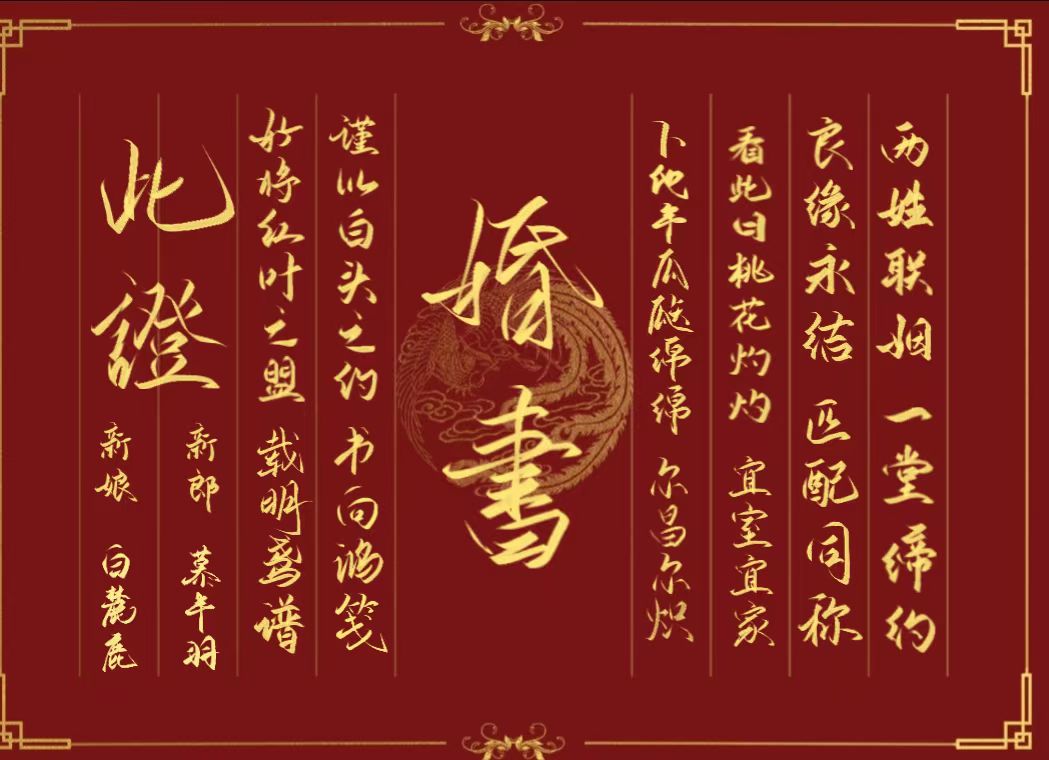 两姓联姻 一堂缔约
良缘永结 匹配同称
看此日桃花灼灼 宜室宜家
卜他年瓜瓞绵绵 尔昌尔炽
婚書
谨以白头之约 书向鸿笺
好将红叶之盟 载明鸳谱
此證
新郎 慕年羽
新娘 白麓鹿